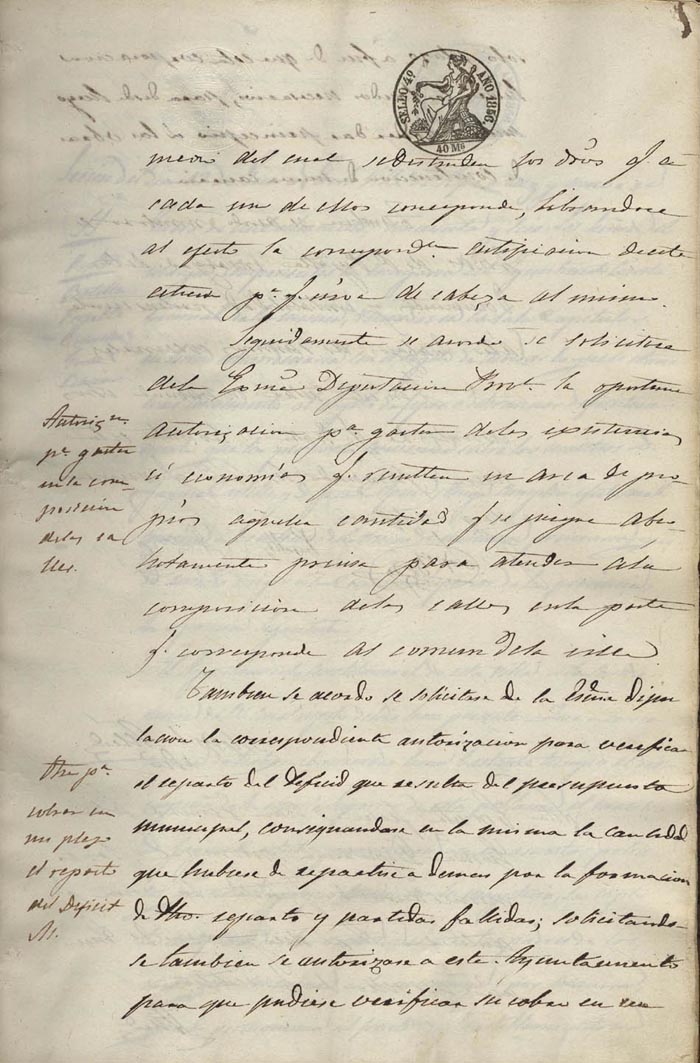 SELLO 4º AÑO 1856.
40 Ms
medio del cual se distinguen los dros q. a
cada un de ellos corresponde, librandose
al efecto la correspondte. certificacion de este
pa. q. sirva de cabeza al mismo.
Seguidamente se acordo se solicitase
dela Exma Diputacion Provl. la oportuna
autorizacion pa. gastar delas existencias
ó economias q. resulten en arca de pro-
pios aquella cantidad q. se juzgue abso-
lutamente precisa para atender ala
composicion delas calles enla parte
q. corresponde al comun dela villa.
Autorizon.
pa. gastar
en la com-
posicion
delas ca
lles.
Tambien se acordo se solicitase de la Exma Dipu
tacion la correspondiente autorizacion para verificar
el reparto del deficid que resulta del presupuesto
municipal, consignandose en la misma la cantidad
que hubiese de repartirse a demas por la formacion
de dho. reparto y partidas fallidas; solicitando-
se tambien se autorizase a este Ayuntamiento
para que pudiese verificar su cobro en un
pa.
cobrar en
un plazo
el reparto
del Deficit
M.